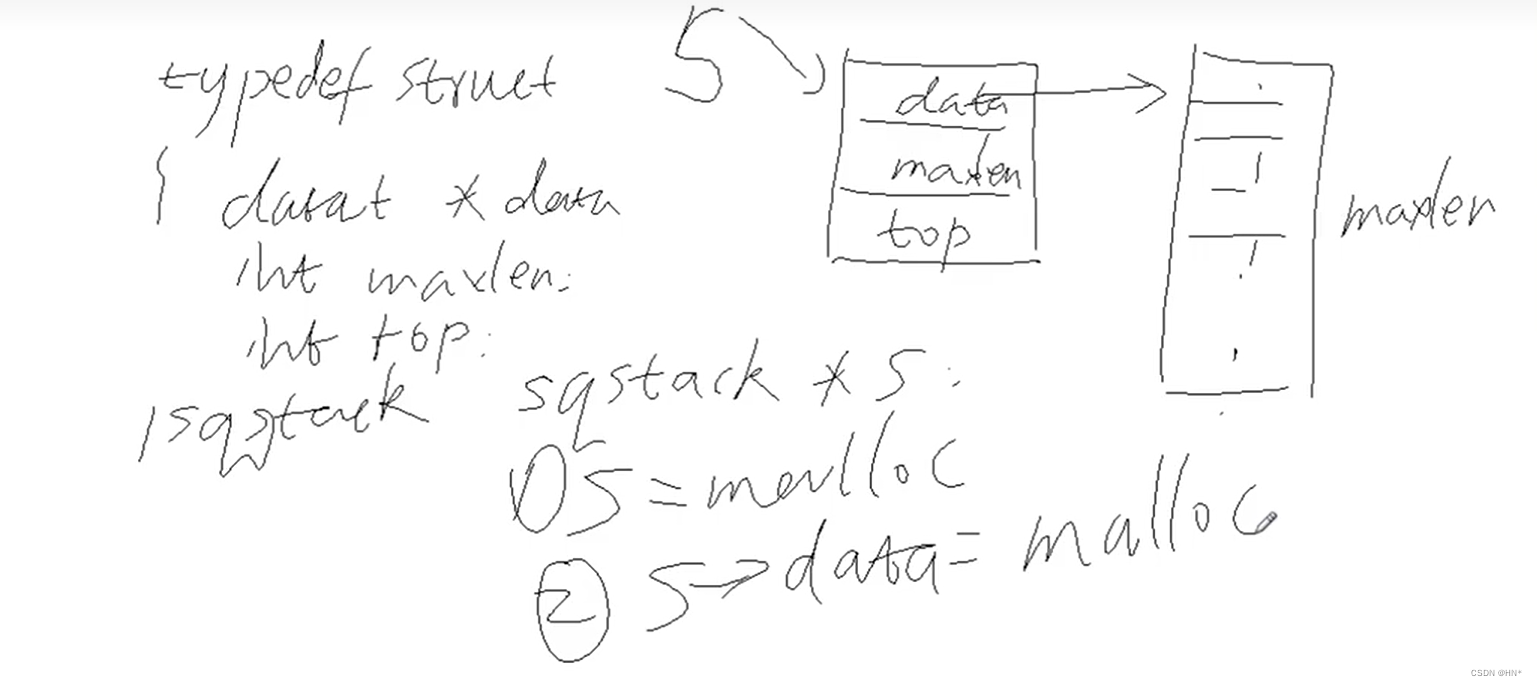 typedef struct
{ datat * data
int maxlen;
int top;
}sqstack
S
data
maxlen
top
maxlen
sqstack * S;
① S = malloc
② S→data = malloc
CSDN @HN*